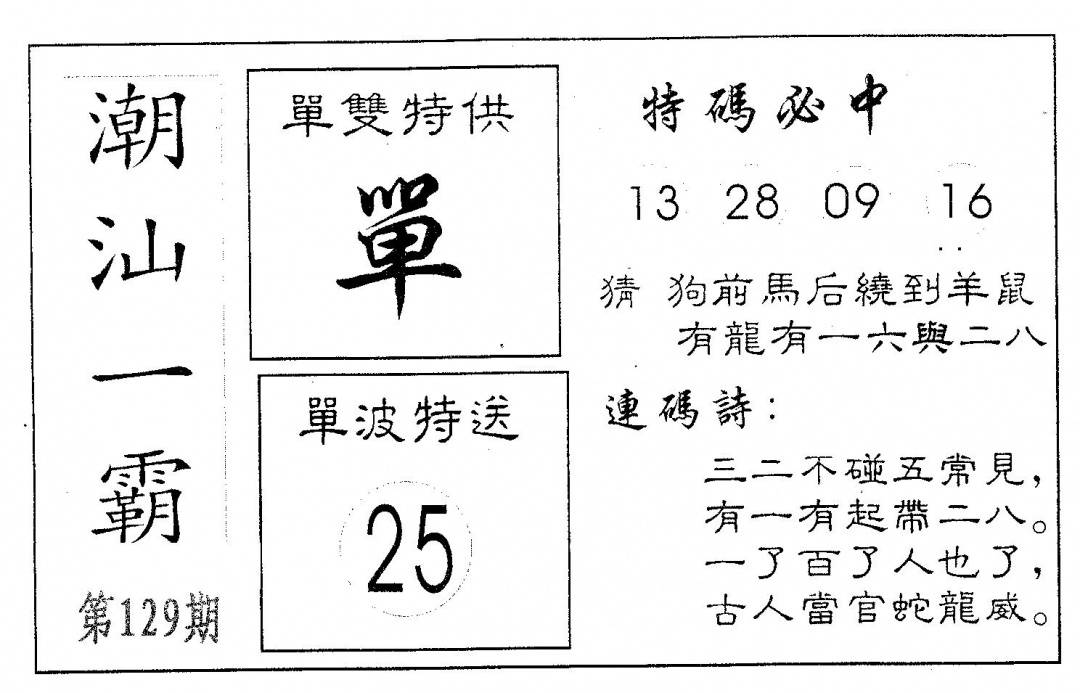 潮汕一霸
第129期
單雙特供
單
單波特送
25
特碼必中
13 28 09 16
猜 狗前馬后繞到羊鼠
有龍有一六與二八
連碼詩：
三二不碰五常見，
有一有起帶二八。
一了百了人也了，
古人當官蛇龍威。